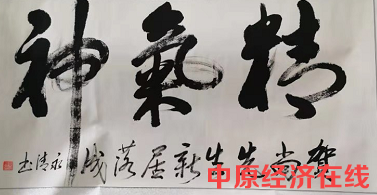 精氣神
贺尚先生新居落成 永清书
中原经济在线